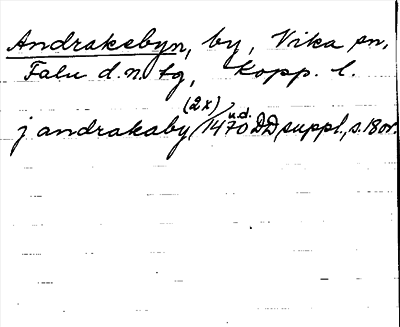 Andraksbyn, by, Vika sn,
Falu d.n. tg, Kopp. l.
j andrakaby (2x) / 1470 u.d. DD suppl., s. 18 or.